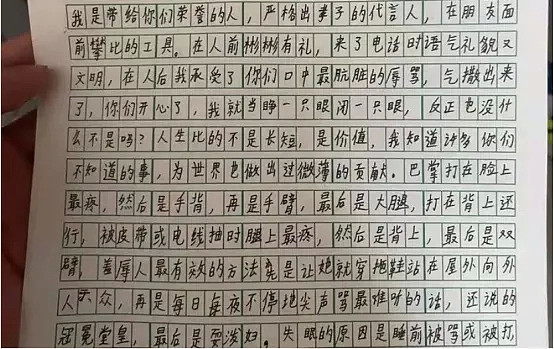 我是带给你们荣誉的人，严格出孝子的代言人，在朋友面
前攀比的工具。在人前彬彬有礼，来了电话时语气礼貌又
文明，在人后我承受了你们口中最肮脏的辱骂，气撒出来
了，你们开心了，我就当睁一只眼闭一只眼，反正也没什
么不是吗？人生比的不是长短，是价值，我知道许多你们
不知道的事，为世界也做出过微薄的贡献。巴掌打在脸上
最疼，然后是手背，再是手臂，最后是大腿，打在背上还
行，被皮带或电线抽时腿上最疼，然后是背上，最后是双
臂，羞辱人最有效的方法是让她就穿拖鞋站在屋外向外
人示众，再是每日每夜不停地尖声骂最难听的话，还说的
冠冕堂皇，最后是耍泼妇。失眠的原因是睡前被骂或被打，